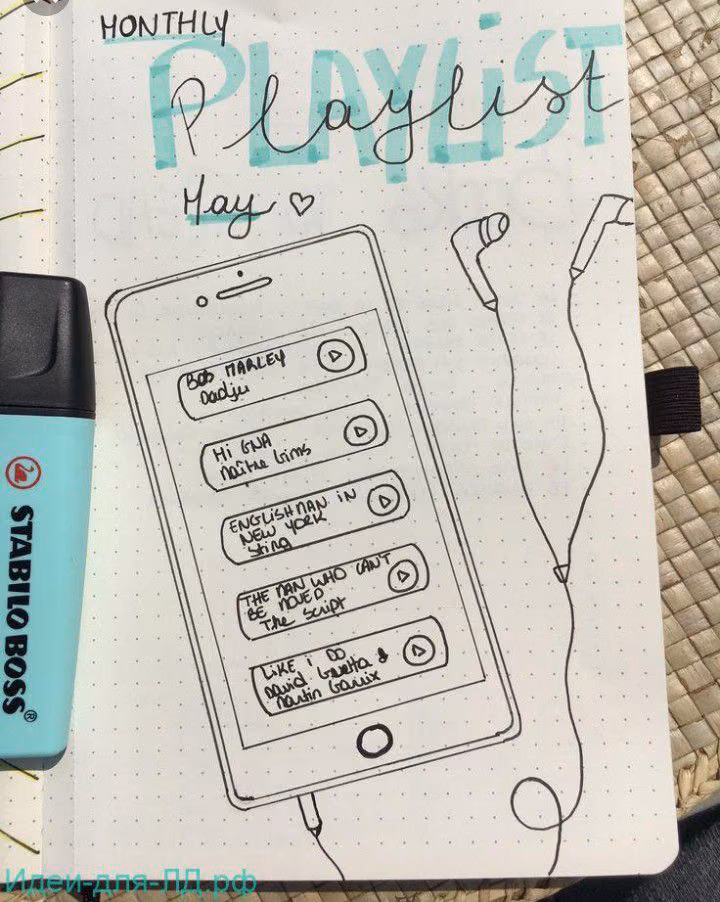 MONTHLY
PLAYLiST
Playlist
May ♡
BOB MARLEY
Dadju
Mi GNA
Maître Gims
ENGLISHMAN iN
NEW YORK
Sting
THE MAN WHO CAN'T
BE MOVED
The Script
LiKE i DO
David Guetta &
Martin Garrix
STABILO BOSS®
Идеи-для-ЛД.рф